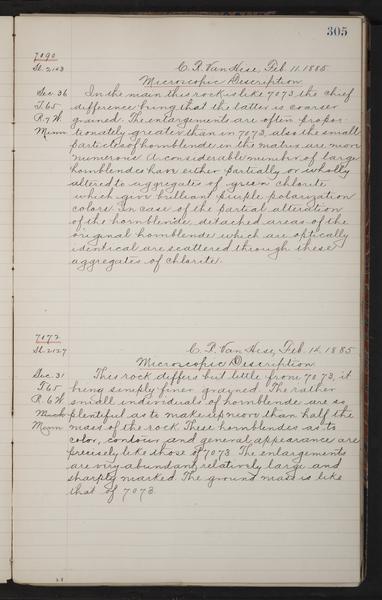 305
7090
Sl. 2103
C. R. Van Hise, Feb. 11. 1885
Microscopic Description
Sec. 36 In the main this rock is like 7073, the chief
T. 65 difference being that the latter is coarser
R. 7 W. grained. The enlargements are often propor-
Minn tionately greater than in 7073, also the small
particles of hornblende in the matrix are more
numerous. A considerable number of large
hornblendes have either partially or wholly
altered to aggregates of green chlorite
which give brilliant purple polarization
colors. In case of the partial alteration
of the hornblende, detached areas of the
original hornblende which are optically
identical are scattered through these
aggregates of chlorite.
Sl. 2127
C. R. Van Hise, Feb. 14. 1885
Microscopic Description
Sec. 31 This rock differs but little from 7073, it
T. 65 being simply finer grained. The rather
R. 6 W. small individuals of hornblende are so
plentiful as to make up more than half the
Minn mass of the rock. These hornblendes as to
color, contour and general appearance are
precisely like those of 7073. The enlargements
are very abundant, relatively large and
sharply marked. The ground mass is like
that of 7073.